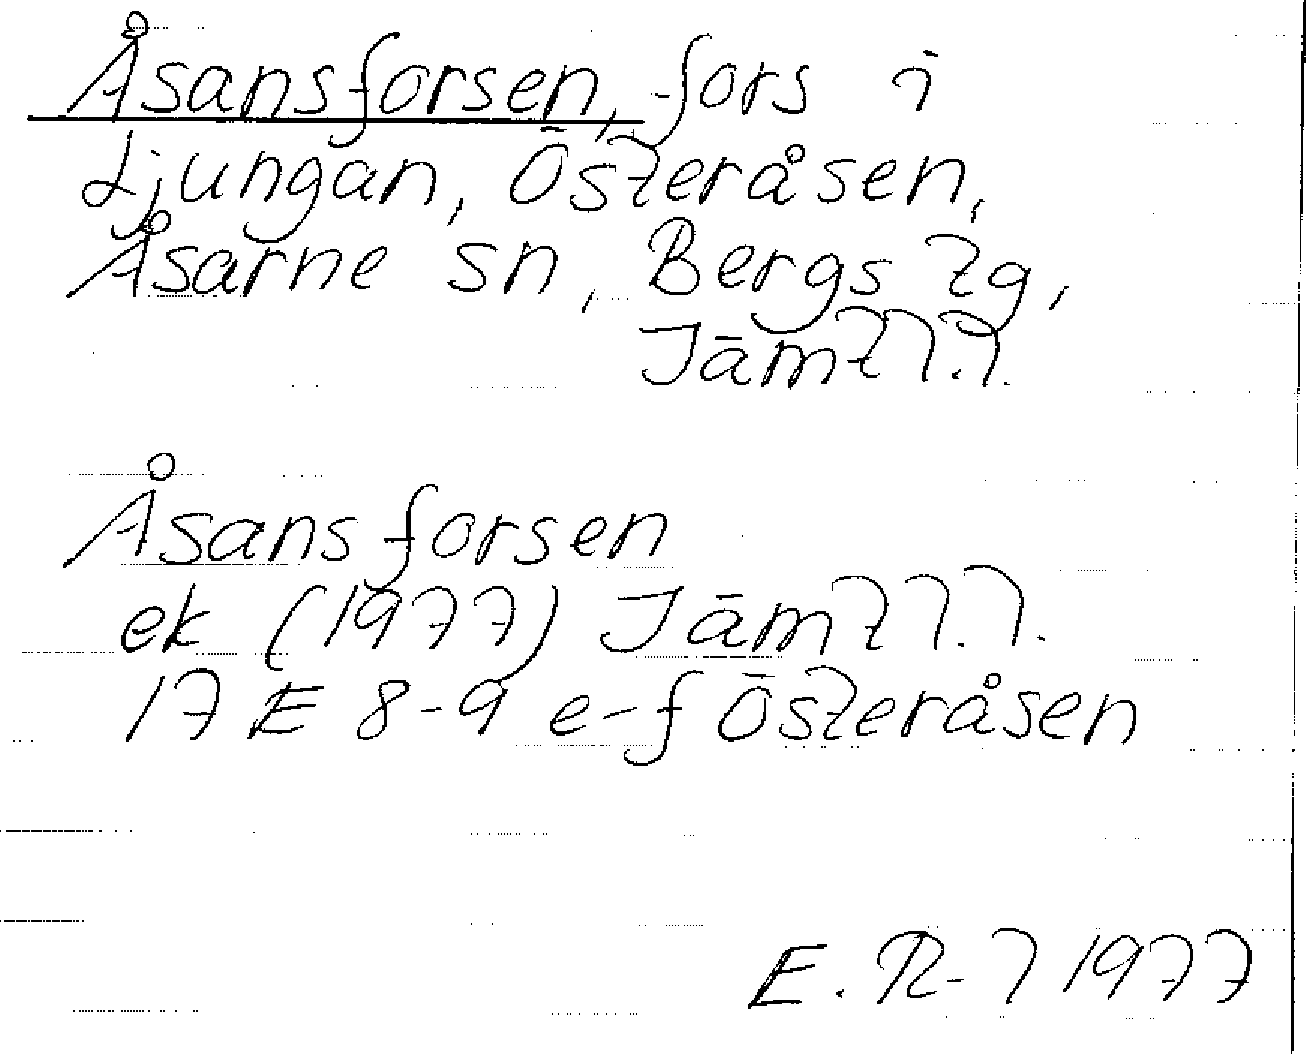 Åsansforsen, fors i
Ljungan, Österåsen,
Åsarne sn, Bergs tg,
Jämtl.l.
Åsansforsen
ek (1977) Jämtl.l.
17 E 8-9 e-f Österåsen
E. R-l 1977